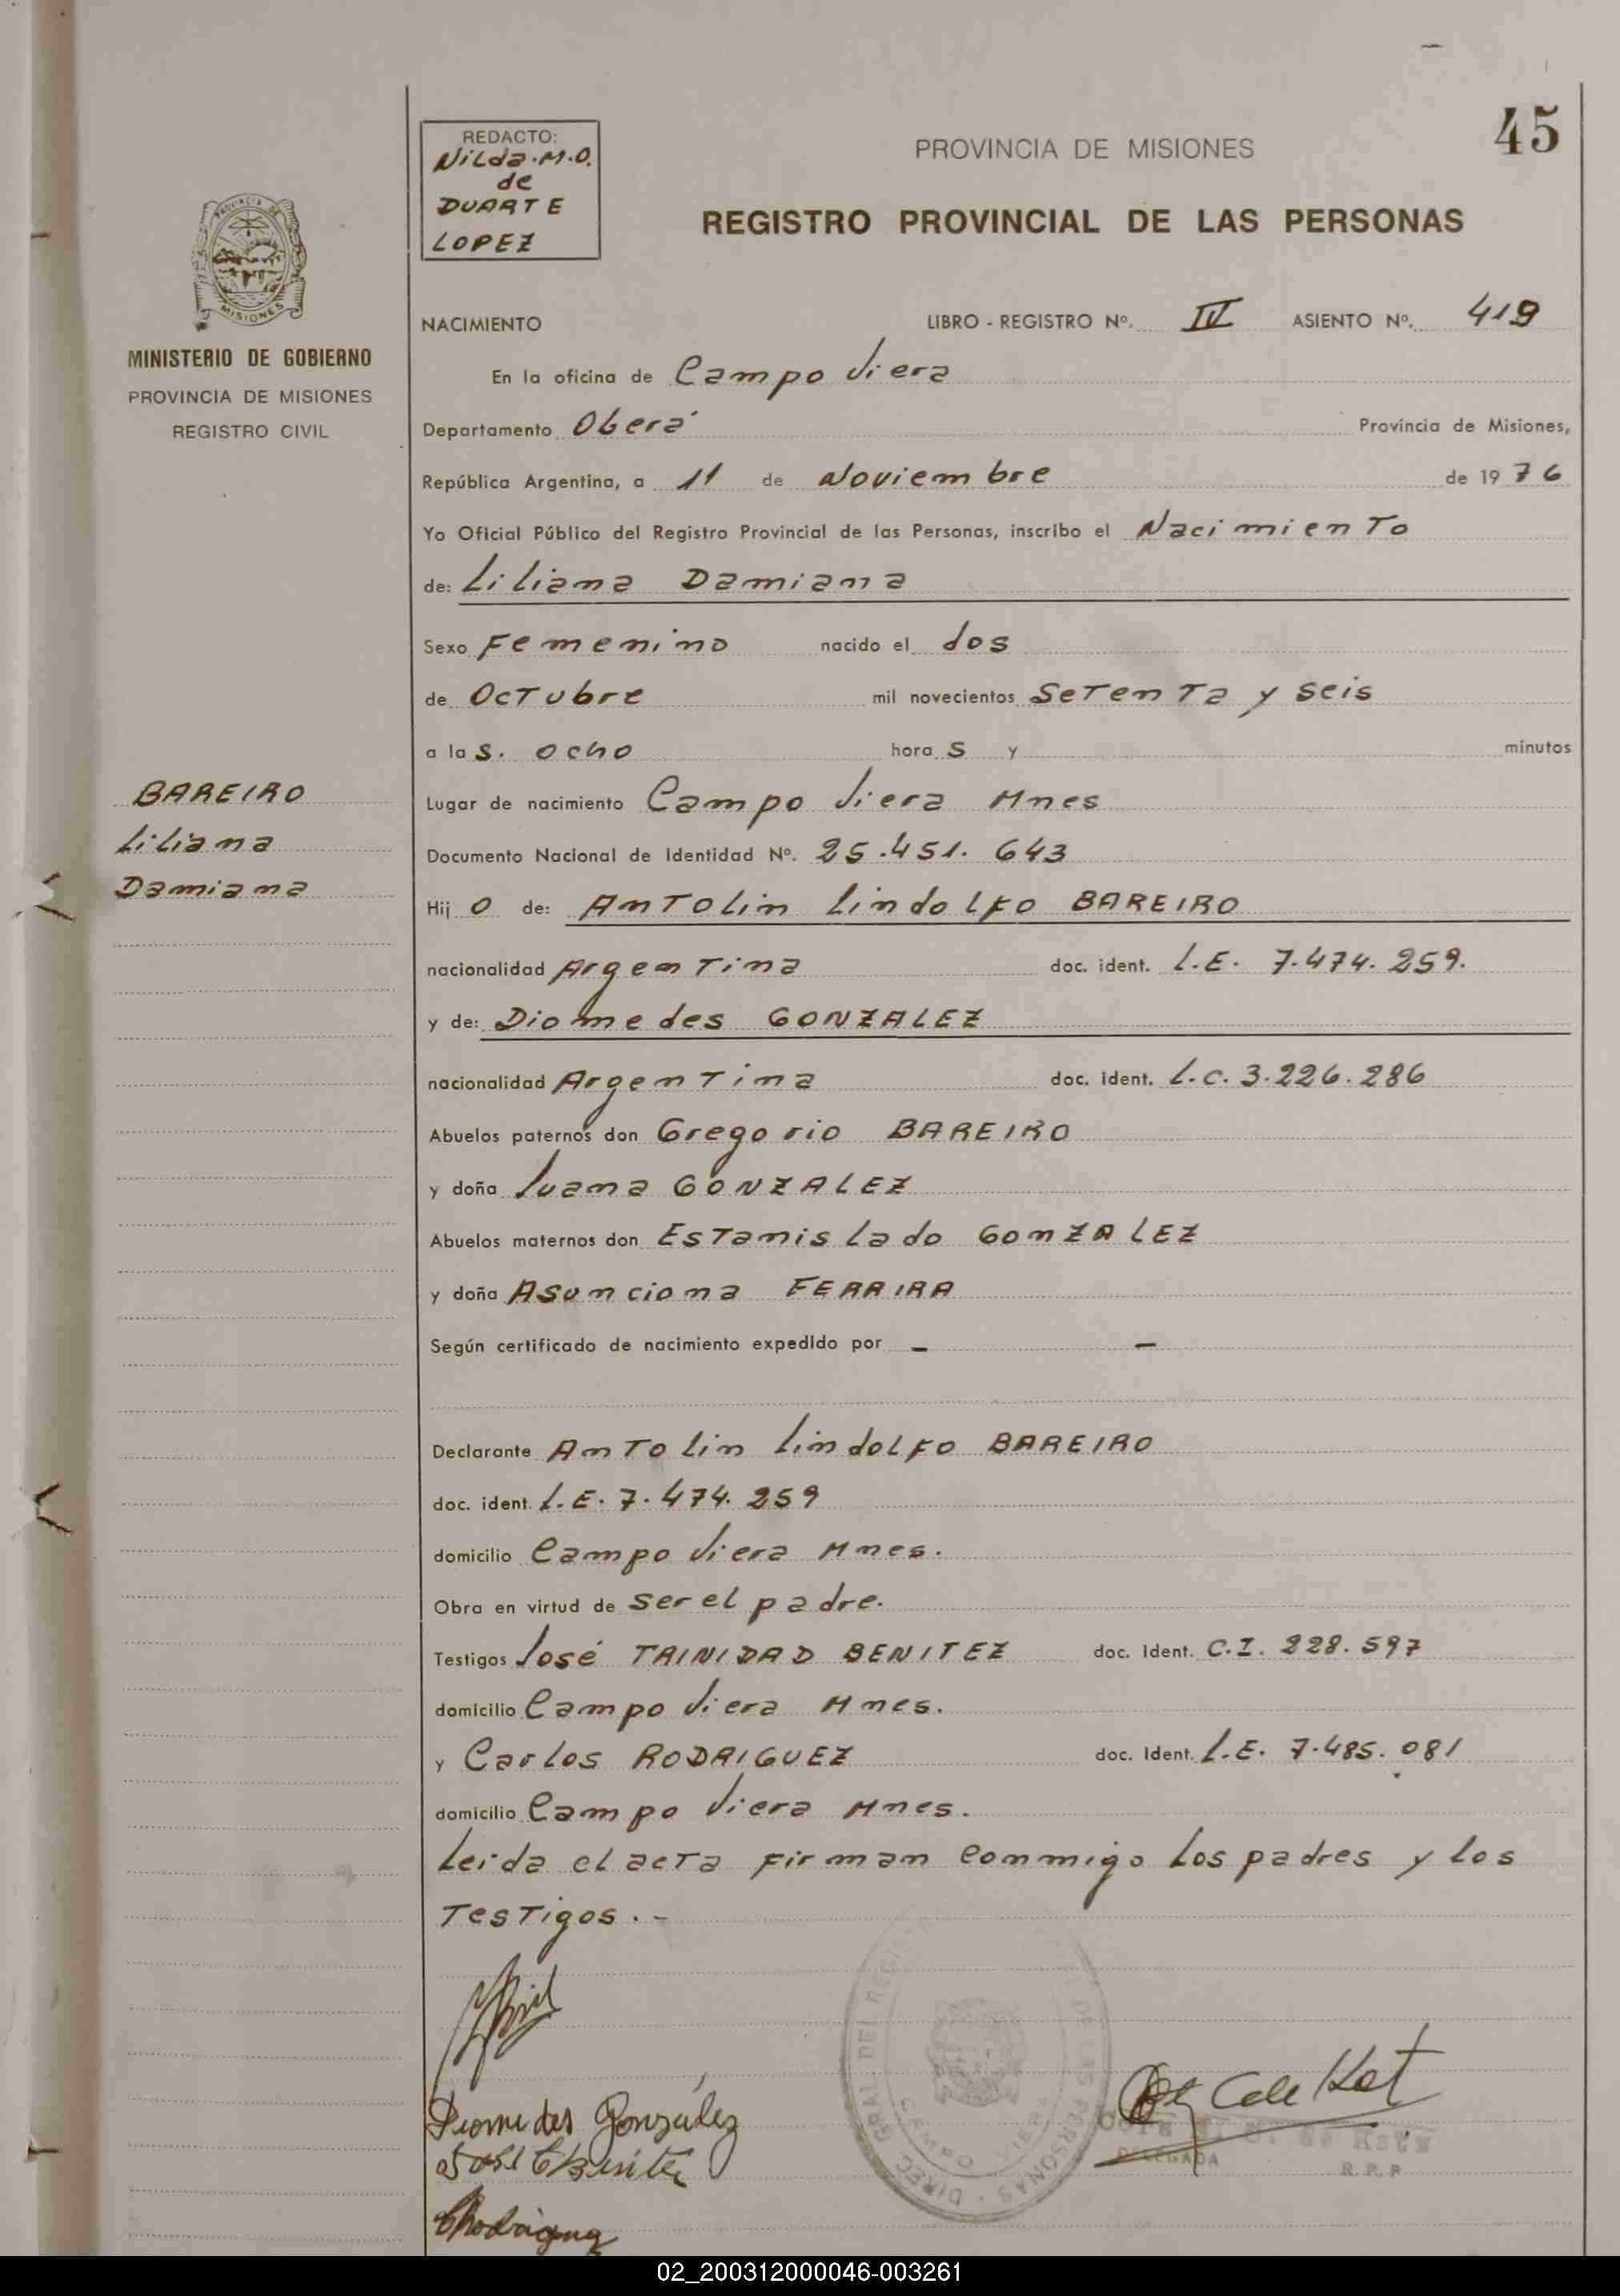 45
REDACTO:
Nilda.M.O.
de
DUARTE
LOPEZ
PROVINCIA DE MISIONES
REGISTRO PROVINCIAL DE LAS PERSONAS
PROVINCIA DE
MISIONES
MINISTERIO DE GOBIERNO
PROVINCIA DE MISIONES
REGISTRO CIVIL
NACIMIENTO LIBRO - REGISTRO Nº. IV ASIENTO Nº. 419
En la oficina de Campo Viera
Departamento Oberá Provincia de Misiones,
República Argentina, a 11 de Noviembre de 1976
Yo Oficial Público del Registro Provincial de las Personas, inscribo el Nacimiento
de: Liliana Damiana
Sexo Femenino nacido el dos
de Octubre mil novecientos Setenta y seis
a las. ocho horas y minutos
BAREIRO
Liliana
Damiana
Lugar de nacimiento Campo Viera Mnes
Documento Nacional de Identidad Nº. 25.451.643
Hijo de: Antolin Lindolfo BAREIRO
nacionalidad Argentina doc. ident. L.E. 7.474.259.
y de: Diomedes GONZALEZ
nacionalidad Argentina doc. ident. L.C. 3.226.286
Abuelos paternos don Gregorio BAREIRO
y doña Juana GONZALEZ
Abuelos maternos don Estanislado GonZALEZ
y doña Asunciona FERRIRA
Según certificado de nacimiento expedido por - -
Declarante Antolin Lindolfo BAREIRO
doc. ident. L.E. 7.474.259
domicilio Campo Viera Mnes.
Obra en virtud de ser el padre.
Testigos José TRINIDAD BENITEZ doc. Ident. C.I. 228.597
domicilio Campo Viera Mnes.
y Carlos RODRIGUEZ doc. Ident. L.E. 7.485.081
domicilio Campo Viera Mnes.
Leida el acta firman conmigo los padres y los
Testigos.-
DIREC. GRAL. DEL REGI DE LAS PERSONAS
CAMPO VIERA
Diomedes González
DELEGADA
R.P.P.
CRodriguez
02_200312000046-003261